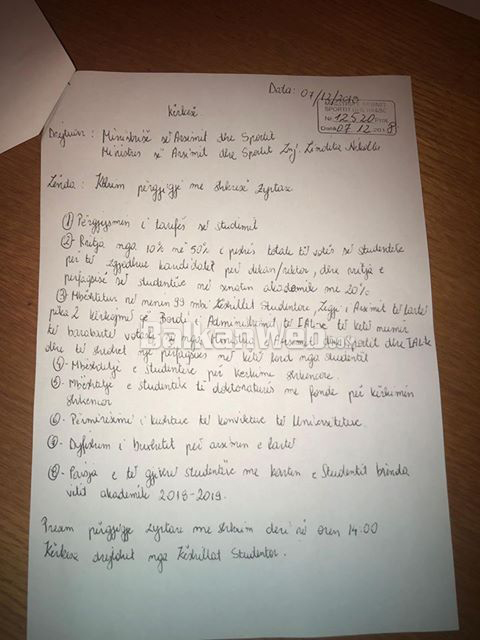 Data: 07/12/2018
SPORTIT
Nr. 12520 Prot
Datë 07.12.2018
Kërkesë
Drejtuar: Ministrisë së Arsimit dhe Sportit
Ministres së Arsimit dhe Sportit Znj. Lindita Nikolla
Lënda: Kthim përgjigje me shkresë zyrtare
① Përgjysmim i tarifës së studimit
② Rritja nga 10% në 50% e peshës totale të votës së studentëve
për të zgjedhur kandidatët për dekan/rektor, dhe rritja e
përfaqësisë së studentëve në senatin akademik me 20%
③ Mbështetur në nenin 99 mbi Këshillat Studentore, Ligji i Arsimit të lartë
pika 2 kërkojmë që Bordi i Administrimit të IAL-ve të ketë numër
të barabartë votash Ministria e Arsimit dhe Sportit dhe IAL-të
dhe të shtohet një përfaqësues në këtë bord nga studentët
④ Mbështetje e studentëve për kërkime shkencore.
⑤ Mbështetje e studentëve të doktoraturës me fonde për kërkimin
shkencor
⑥ Përmirësimi i kushteve të konvikteve të Universiteteve.
⑦ Dyfishim i buxhetit për arsimin e lartë
⑧ Pajisja e të gjithë studentëve me kartën e Studentit brenda
vitit akademik 2018-2019.
Presim përgjigje zyrtare me shkrim deri në orën 14:00
Kërkesa drejtohet nga Këshillat Studentor.
BalkanWeb